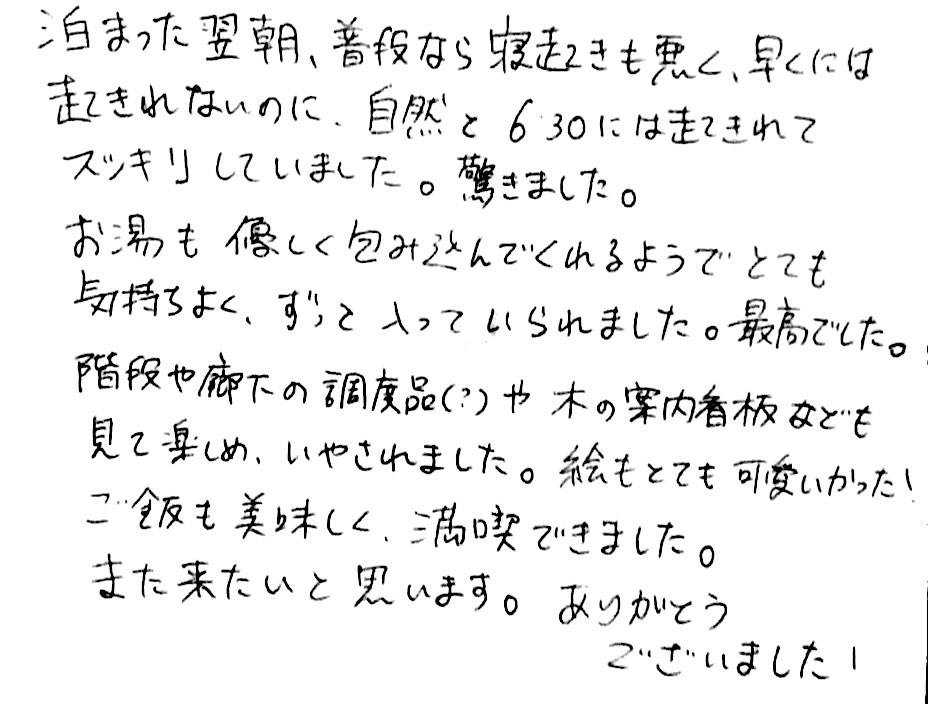 泊まった翌朝、普段なら寝起きも悪く、早くには
起きれないのに、自然と 6:30には起きれて
スッキリしていました。驚きました。
お湯も優しく包み込んでくれるようでとても
気持ちよく、ずっと入っていられました。最高でした。
階段や廊下の調度品(?)や木の案内看板なども
見て楽しめ、いやされました。絵もとても可愛いかった!
ご飯も美味しく、満喫できました。
また来たいと思います。ありがとう
ございました!